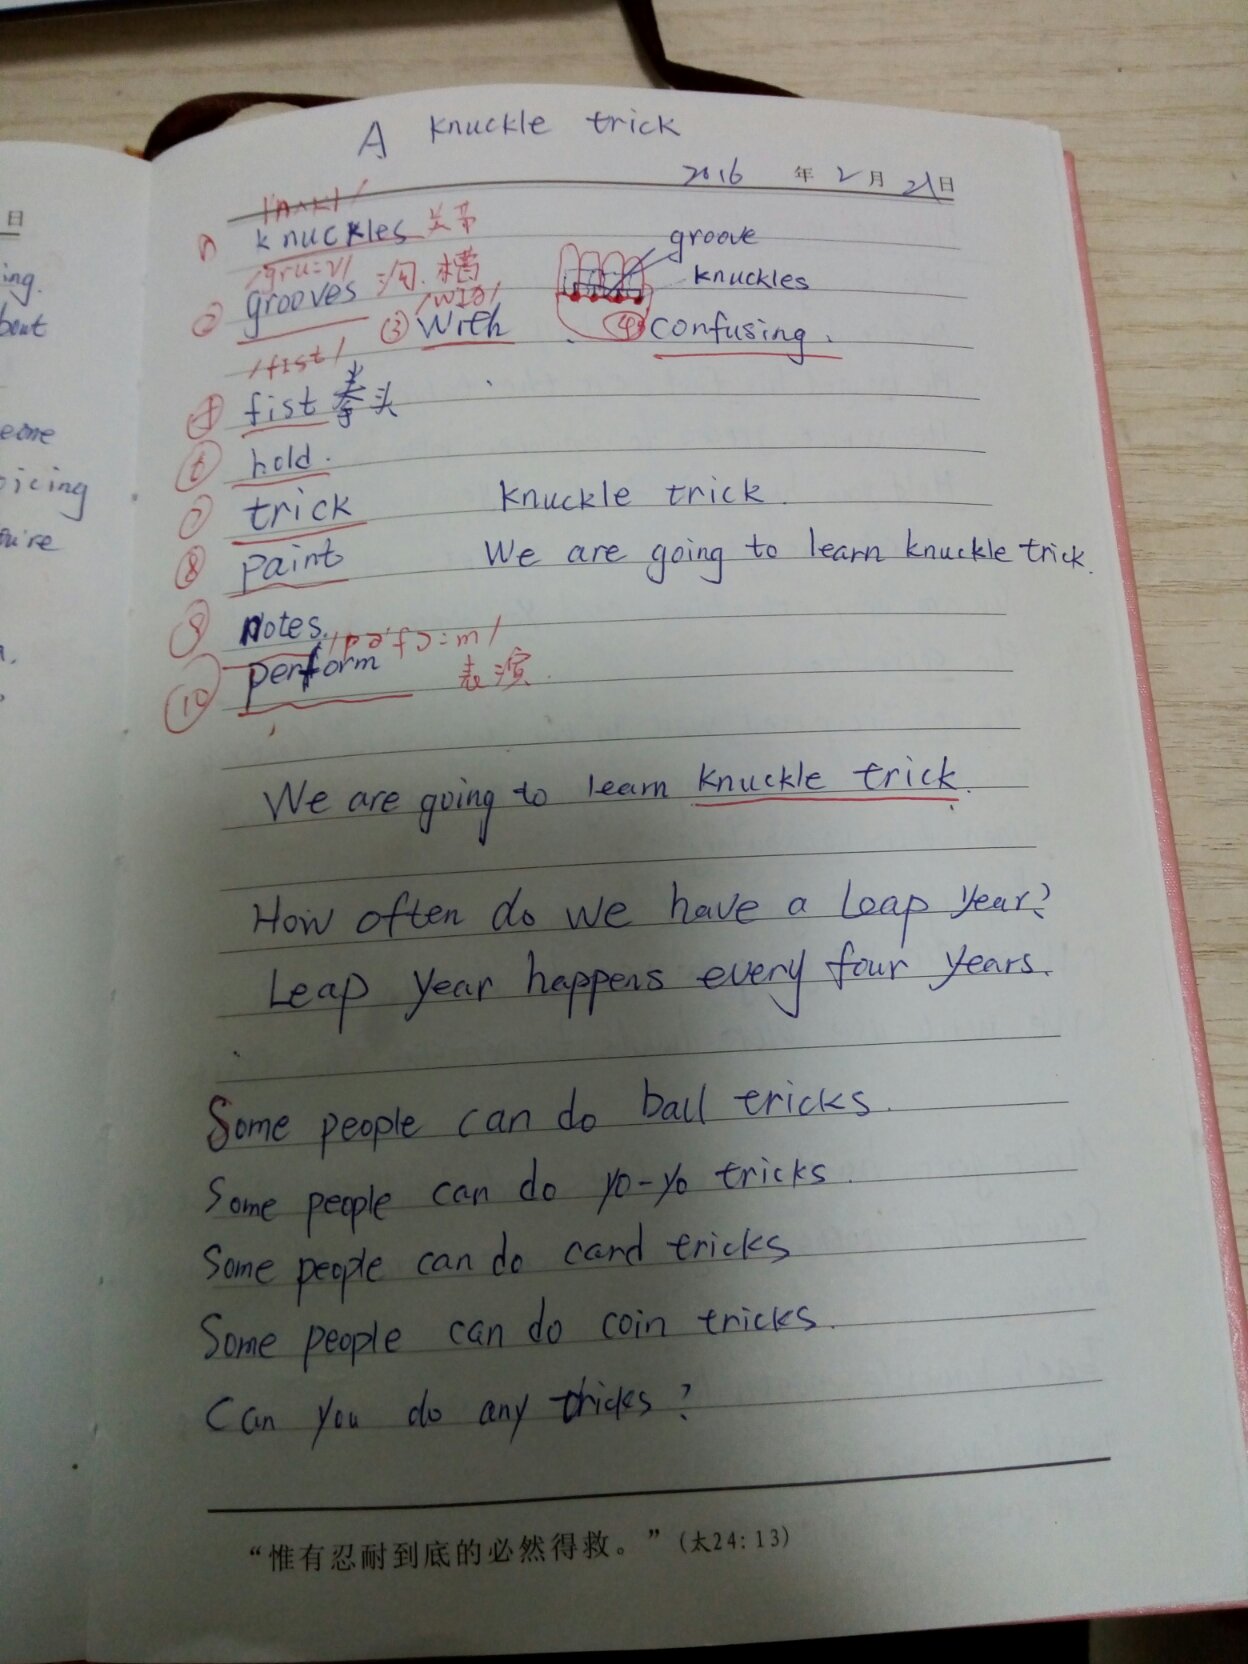 A knuckle trick
2016 年 2 月 21 日
日
① knuckles 关节
/gru:v/
② grooves 沟.槽
groove
knuckles
/wɪð/
③ With
④ confusing.
/fist/
fist 拳头
hold.
⑦ trick knuckle trick.
⑧ paint We are going to learn knuckle trick.
⑨ Notes.
⑩ perform 表演.
We are going to learn knuckle trick.
How often do we have a leap year?
Leap year happens every four years.
Some people can do ball tricks.
Some people can do yo-yo tricks.
Some people can do card tricks
Some people can do coin tricks.
Can you do any tricks?
“惟有忍耐到底的必然得救。”(太24:13)
ing.
bout
eone
oicing